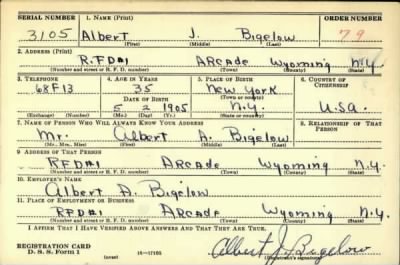 SERIAL NUMBER 1. NAME (Print) ORDER NUMBER
3105 Albert J. Bigelow 79
(First) (Middle) (Last)
2. ADDRESS (Print)
R.F.D#1 ARCADE Wyoming N.Y.
(Number and street or R. F. D. number) (Town) (County) (State)
3. TELEPHONE 4. AGE IN YEARS 5. PLACE OF BIRTH 6. COUNTRY OF CITIZENSHIP
68F13 35 New York
DATE OF BIRTH (Town or county)
5 2 1905 N.Y. U.S.A.
(Exchange) (Number) (Mo.) (Day) (Yr.) (State or country)
7. NAME OF PERSON WHO WILL ALWAYS KNOW YOUR ADDRESS 8. RELATIONSHIP OF THAT PERSON
Mr. Albert A. Bigelow
(Mr., Mrs., Miss) (First) (Middle) (Last)
9. ADDRESS OF THAT PERSON
RFD#1 ARCADE Wyoming N.Y.
(Number and street or R. F. D. number) (Town) (County) (State)
10. EMPLOYER'S NAME
Albert A. Bigelow
11. PLACE OF EMPLOYMENT OR BUSINESS
RFD#1 ARCADE Wyoming N.Y.
(Number and street or R. F. D. number) (Town) (County) (State)
I AFFIRM THAT I HAVE VERIFIED ABOVE ANSWERS AND THAT THEY ARE TRUE.
REGISTRATION CARD
D. S. S. Form 1 16—17105 Albert J. Bigelow
(over) (Registrant's signature)